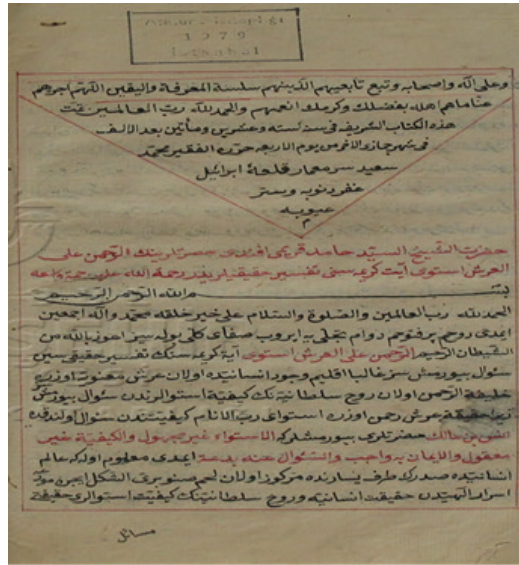 1979
İstanbul
وعلى آله واصحابه وتبع تابعيهم الذينهم سلسة المعرفة واليقين اللهم اجرهم
عنا ماهم اهله بفضلك وكرمك انعمهم والحمد لله رب العالمين تمت
هذه الكتاب الشريف فى سنة ستة وعشرين ومأتين بعد الالف
فى شهر جمازى الاخر من يوم الاربعه حرره الفقير محمد
سعيد سر معمار قلعۀ ابرائيل
غفر ذنوبه وستر
عيوبه
م
حضرت الشيخ السيد حامد افندى حضرتلرينك الرحمن على
العرش استوى آيت كريمه سنى تفسير حقيقيلريدر رحمة الله عليه رحمة واسعه
بسم الله الرحمن الرحيم
الحمد لله رب العالمين والصلوة والسلام على خير خلقه محمد وآله اجمعين
ايمدى روحم پر فتوحم دوام تجلى يه ايروب صفاى كلى بوله سز اعوذ بالله من
الشيطان الرجيم الرحمن على العرش استوى آية كريمه سنك تفسير حقيقى سين
سئوال بيورمش سز غالبا اقليم وجود انسانيده اولان عرش معنويه اوزره
خليفة الرحمن اولان روح سلطانينك كيفيت استوالرندن سئوال
زيرا حقيقة عرش رحمن اوزره استواى رب الانام كيفيتندن سئوال
انس بن مالك حضرتلرى بيورمشلر كه الاستواء غير مجهول والكيفية غير
معقول والايمان به واجب والسئوال عنه بدعة ايمدى معلوم اوله كه عالم
انسانيده صدرك طرف يسارنده مركوز اولان لحم صنوبرى الشكل
اسرار الهيدن حقيقت انسانيه وروح سلطانينك كيفيت استوالرى حقيقت
مسائل